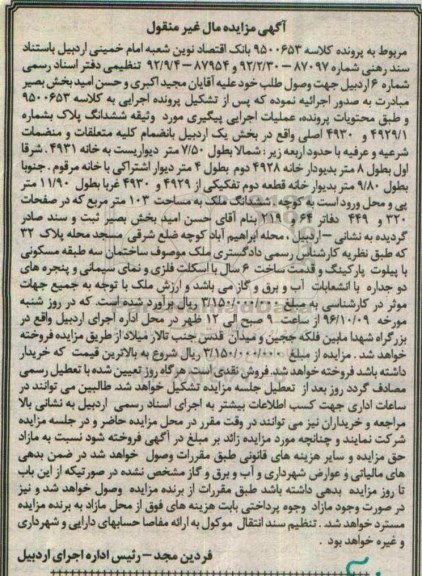 آگهی مزایده مال غیر منقول
مربوط به پرونده کلاسه ۹۵۰۰۶۵۳ بانک اقتصاد نوین شعبه امام خمینی اردبیل باستناد
سند رهنی شماره ۸۷۰۹۷ – ۹۲/۲/۳۰ و ۸۷۹۵۴ – ۹۲/۹/۴ تنظیمی دفتر اسناد رسمی
شماره ۶ اردبیل جهت وصول طلب خود علیه آقایان مجید اکبری و حسن امید بخش بصیر
مبادرت به صدور اجرائیه نموده که پس از تشکیل پرونده اجرایی به کلاسه ۹۵۰۰۶۵۳
و طبق محتویات پرونده، عملیات اجرایی پیگیری مورد وثیقه ششدانگ پلاک بشماره
۴۹۲۹/۱ و ۴۹۳۰ اصلی واقع در بخش یک اردبیل بانضمام کلیه متعلقات و منضمات
شرعیه و عرفیه با حدود اربعه زیر: شمالا بطول ۷/۵۰ متر دیواریست به خانه ۴۹۳۱ . شرقا
اول بطول ۸ متر بدیوار خانه ۴۹۲۸ دوم بطول ۴ متر دیوار اشتراکی با خانه مرقوم . جنوبا
بطول ۹/۸۰ متر بدیوار خانه قطعه دوم تفکیکی از ۴۹۲۹ و ۴۹۳۰ غربا بطول ۱۱/۹۰ متر
پی و محل ورود است به کوچه . ششدانگ ملک به مساحت ۱۰۳ متر مربع که در صفحات
۳۲۰ و ۴۴۹ دفاتر ۶۴ و ۲۱۹ بنام آقای حسن امید بخش بصیر ثبت و سند صادر
گردیده به نشانی – اردبیل ، محله ابراهیم آباد کوچه ضلع شرقی مسجد محله پلاک ۳۲
که طبق نظریه کارشناس رسمی دادگستری ملک موصوف ساختمان سه طبقه مسکونی
با پیلوت پارکینگ و قدمت ساخت ۶ سال با اسکلت فلزی و نمای سیمانی و پنجره های
دو جداره با انشعابات آب و برق و گاز می باشد و ارزش ملک با توجه به جمیع جهات
موثر در کارشناسی به مبلغ ۳/۱۵۰/۰۰۰/۰۰۰ ریال برآورد شده است. که در روز شنبه
مورخه ۹۶/۱۰/۰۹ از ساعت ۹ صبح الی ۱۲ ظهر در محل اداره اجرای اردبیل واقع در
بزرگراه شهدا مابین فلکه ججین و میدان قدس جنب تالار میلاد از طریق مزایده فروخته
خواهد شد . مزایده از مبلغ ۳/۱۵۰/۰۰۰/۰۰۰ ریال شروع به بالاترین قیمت که خریدار
داشته باشد فروخته خواهد شد. فروش نقدی است. هرگاه روز تعیین شده با تعطیل رسمی
مصادف گردد روز بعد از تعطیل جلسه مزایده تشکیل خواهد شد. طالبین می توانند در
ساعات اداری جهت کسب اطلاعات بیشتر به اجرای اسناد رسمی اردبیل به نشانی بالا
مراجعه و خریداران نیز می توانند در وقت مقرر در محل مزایده حاضر و در جلسه مزایده
شرکت نمایند و چنانچه مورد مزایده زائد بر مبلغ در آگهی فروخته شود نسبت به مازاد
حق مزایده و سایر هزینه های قانونی طبق مقررات وصول خواهد شد در ضمن بدهی
های مالیاتی و عوارض شهرداری و آب و برق و گاز مشخص نشده در صورتیکه از این باب
تا روز مزایده بدهی داشته باشد طبق مقررات از برنده مزایده وصول خواهد شد و نیز
در صورت وجود مازاد وجوه پرداختی بابت هزینه های فوق از محل مازاد به برنده مزایده
مسترد خواهد شد . تنظیم سند انتقال موکول به ارائه مفاصا حسابهای دارایی و شهرداری
و غیره خواهد بود .
فردین مجد – رئیس اداره اجرای اردبیل